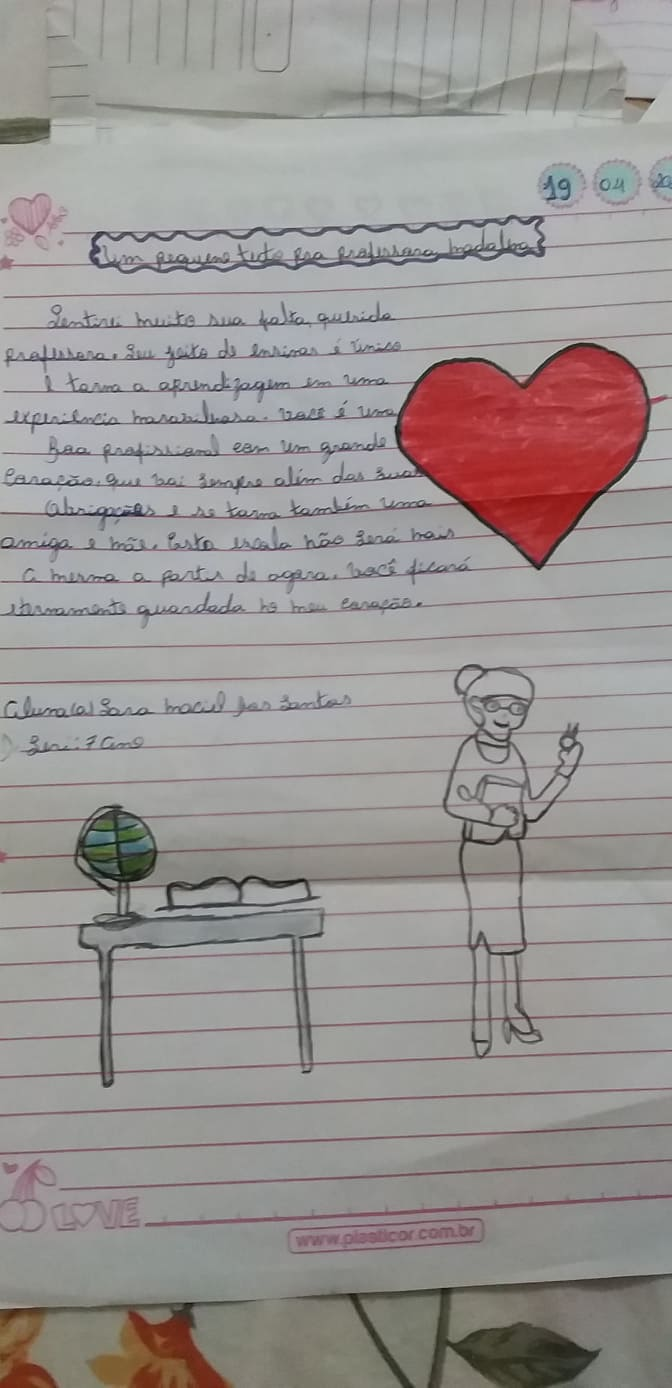 19 04 20
Um pequeno texto pra professora madalena
Sentirei muito sua falta, querida
professora. Seu jeito de ensinar é único
e torna a aprendizagem em uma
experiência maravilhosa. você é uma
Boa profissional com um grande
Coração, que vai sempre além das suas
Obrigações e se torna também uma
amiga e mãe. Esta escola não será mais
a mesma a partir de agora. você ficará
eternamente guardada no meu coração.
Aluna(a) Sara maciel dos Santos
Seri: 7 ano
LOVE
www.plasticor.com.br